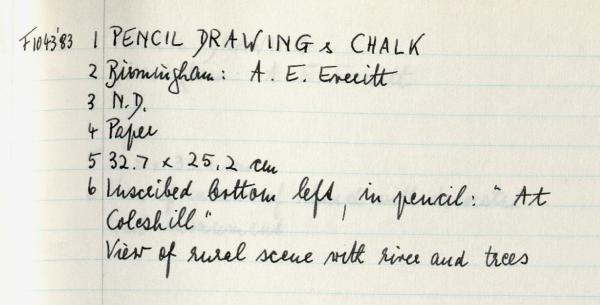 F1043'83 1 PENCIL DRAWING & CHALK
2 Birmingham: A. E. Everitt
3 N.D.
4 Paper
5 32.7 x 25.2 cm
6 Inscibed bottom left, in pencil: "At
Coleshill"
View of rural scene with river and trees